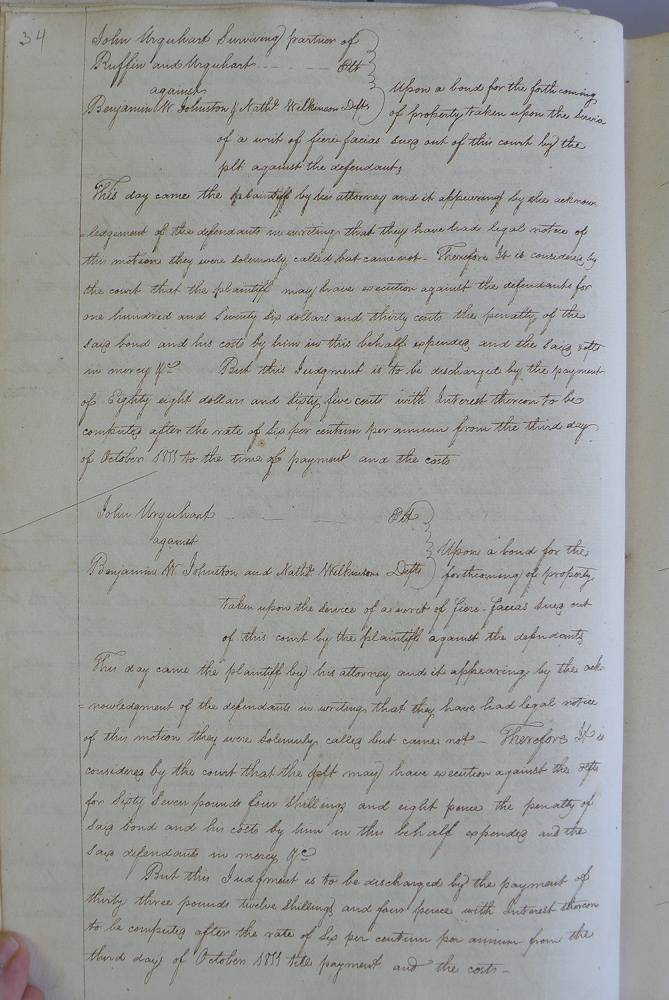 34
John Urquhart Surviving partner of
Ruffin and Urquhart Plt
against
Benjamin W. Johnston & Nathl. Wilkinson Defts
Upon a bond for the forthcoming
of property taken upon the Service
of a writ of fiere facias sued out of this court by the
plt against the defendants
This day came the plaintiff by his attorney and it appearing by the acknow
=ledgement of the defendants in writing that they have had legal notice of
this motion they were solemnly called but came not - Therefore It is considered by
the court that the plaintiff may have execution against the defendants for
one hundred and Seventy Six dollars and thirty cents the penalty of the
said bond and his costs by him in this behalf expended and the said defts
in mercy &c But this Judgment is to be discharged by the payment
of Eighty eight dollars and Sixty five cents with Interest thereon to be
computed after the rate of Six per centum per annum from the third day
of October 1811 to the time of payment and the costs
John Urquhart Plt
against
Benjamin W. Johnston and Nathl. Wilkinson Defts
Upon a bond for the
forthcoming of property
taken upon the service of a writ of fiere-facias sued out
of this court by the plaintiff against the defendants
This day came the plaintiff by his attorney and it appearing by the ack-
=nowledgment of the defendants in writing that they have had legal notice
of this motion they were Solemnly called but came not - Therefore It is
considered by the court that the plt may have execution against the defts
for Sixty Seven pounds four Shillings and eight pence the penalty of
said bond and his costs by him in this behalf expended and the
said defendants in mercy &c
But this Judgment is to be discharged by the payment of
thirty three pounds twelve Shillings and four pence with Interest thereon
to be computed after the rate of Six per centum per annum from the
third day of October 1811 till payment and the costs -